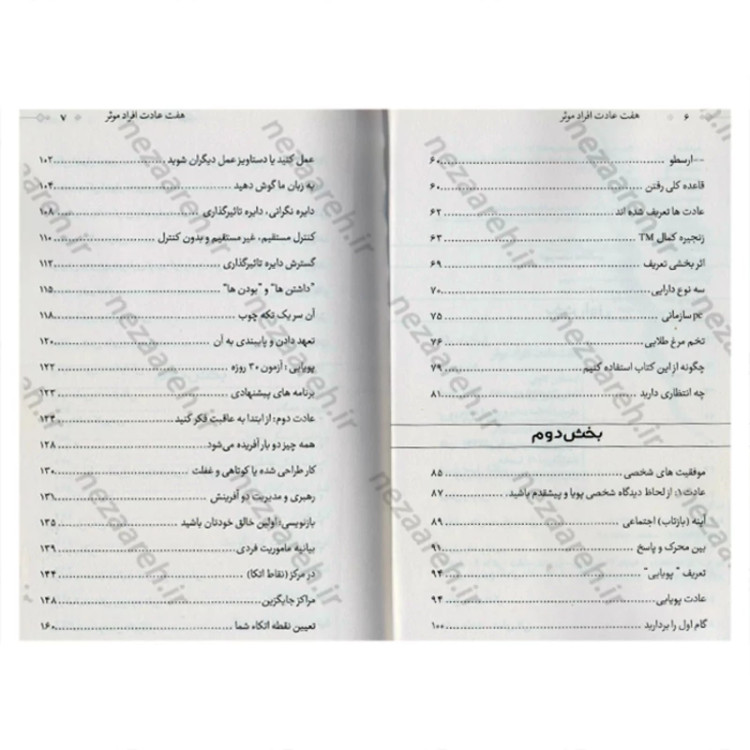 ۶ هفت عادت افراد موثر
--ارسطو ........ ۶۰
قاعده کلی رفتن ........ ۶۰
عادت ها تعریف شده اند ........ ۶۲
زنجیره کمال TM ........ ۶۳
اثر بخشی تعریف ........ ۶۹
سه نوع دارایی ........ ۷۰
pc سازمانی ........ ۷۵
تخم مرغ طلایی ........ ۷۶
چگونه از این کتاب استفاده کنیم ........ ۷۹
چه انتظاری دارید ........ ۸۱
بخش دوم
موفقیت های شخصی ........ ۸۵
عادت ۱: از لحاظ دیدگاه شخصی پویا و پیشقدم باشید ........ ۸۷
آینه (بازتاب) اجتماعی ........ ۸۹
بین محرک و پاسخ ........ ۹۱
تعریف "پویایی" ........ ۹۴
عادت پویایی ........ ۹۴
گام اول را بردارید ........ ۱۰۰
هفت عادت افراد موثر ۷
عمل کنید یا دستاویز عمل دیگران شوید ........ ۱۰۲
به زبان ما گوش دهید ........ ۱۰۴
دایره نگرانی، دایره تاثیرگذاری ........ ۱۰۸
کنترل مستقیم، غیر مستقیم و بدون کنترل ........ ۱۱۰
گسترش دایره تاثیرگذاری ........ ۱۱۲
"داشتن ها" و "بودن ها" ........ ۱۱۵
آن سر یک تکه چوب ........ ۱۱۸
تعهد دادن و پایبندی به آن ........ ۱۲۰
پویایی: آزمون ۳۰ روزه ........ ۱۲۲
برنامه های پیشنهادی ........ ۱۲۳
عادت دوم: از ابتدا به عاقبت فکر کنید ........ ۱۲۴
همه چیز دو بار آفریده می‌شود ........ ۱۲۸
کار طراحی شده یا کوتاهی و غفلت ........ ۱۳۰
رهبری و مدیریت دو آفرینش ........ ۱۳۱
بازنویسی: اولین خالق خودتان باشید ........ ۱۳۵
بیانیه ماموریت فردی ........ ۱۳۹
در مرکز (نقاط اتکا) ........ ۱۴۴
مراکز جایگزین ........ ۱۴۸
تعیین نقطه اتکاه شما ........ ۱۶۰
nezaareh.ir